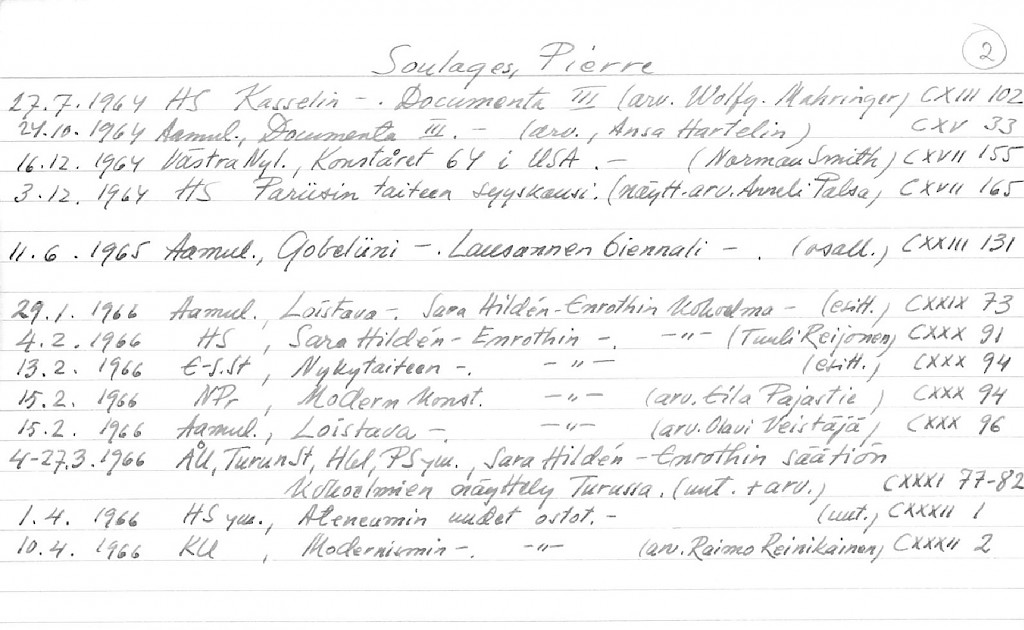 2
Soulages, Pierre
27.7.1964 HS Kasselin -. Documenta III (arv. Wolfg. Mahringer) CXIII 102
24.10.1964 Aamul., Documenta III. - (arv., Ansa Hartelin) CXV 33
16.12.1964 Västra Nyl., Konståret 64 i USA. - (Norman Smith) CXVII 155
3.12.1964 HS Pariisin taiteen syyskausi. (näytt.arv. Anneli Palsa) CXVII 165
11.6.1965 Aamul., Gobeliini -. Lausannen biennali - . (osall.) CXXIII 131
29.1.1966 Aamul., Loistava -. Sara Hildén-Enrothin kokoelma - (esitt.) CXXIX 73
4.2.1966 HS, Sara Hildén-Enrothin -. -"- (Tuuli Reijonen) CXXX 91
13.2.1966 E-S.St, Nykytaiteen -. -"- (esitt.) CXXX 94
15.2.1966 NPr, Modern Konst. -"- (arv. Eila Pajastie) CXXX 94
15.2.1966 Aamul., Loistava -. -"- (arv. Olavi Veistäjä) CXXX 96
4-27.3.1966 ÅU, TurunSt, Hbl, PSym., Sara Hildén-Enrothin säätiön
kokoelmien näyttely Turussa. (uut. + arv.) CXXXI 77-82
1.4.1966 HS ym., Ateneumin uudet ostot. - (uut.) CXXXII 1
10.4.1966 KU, Modernismin -. -"- (arv. Raimo Reinikainen) CXXXII 2